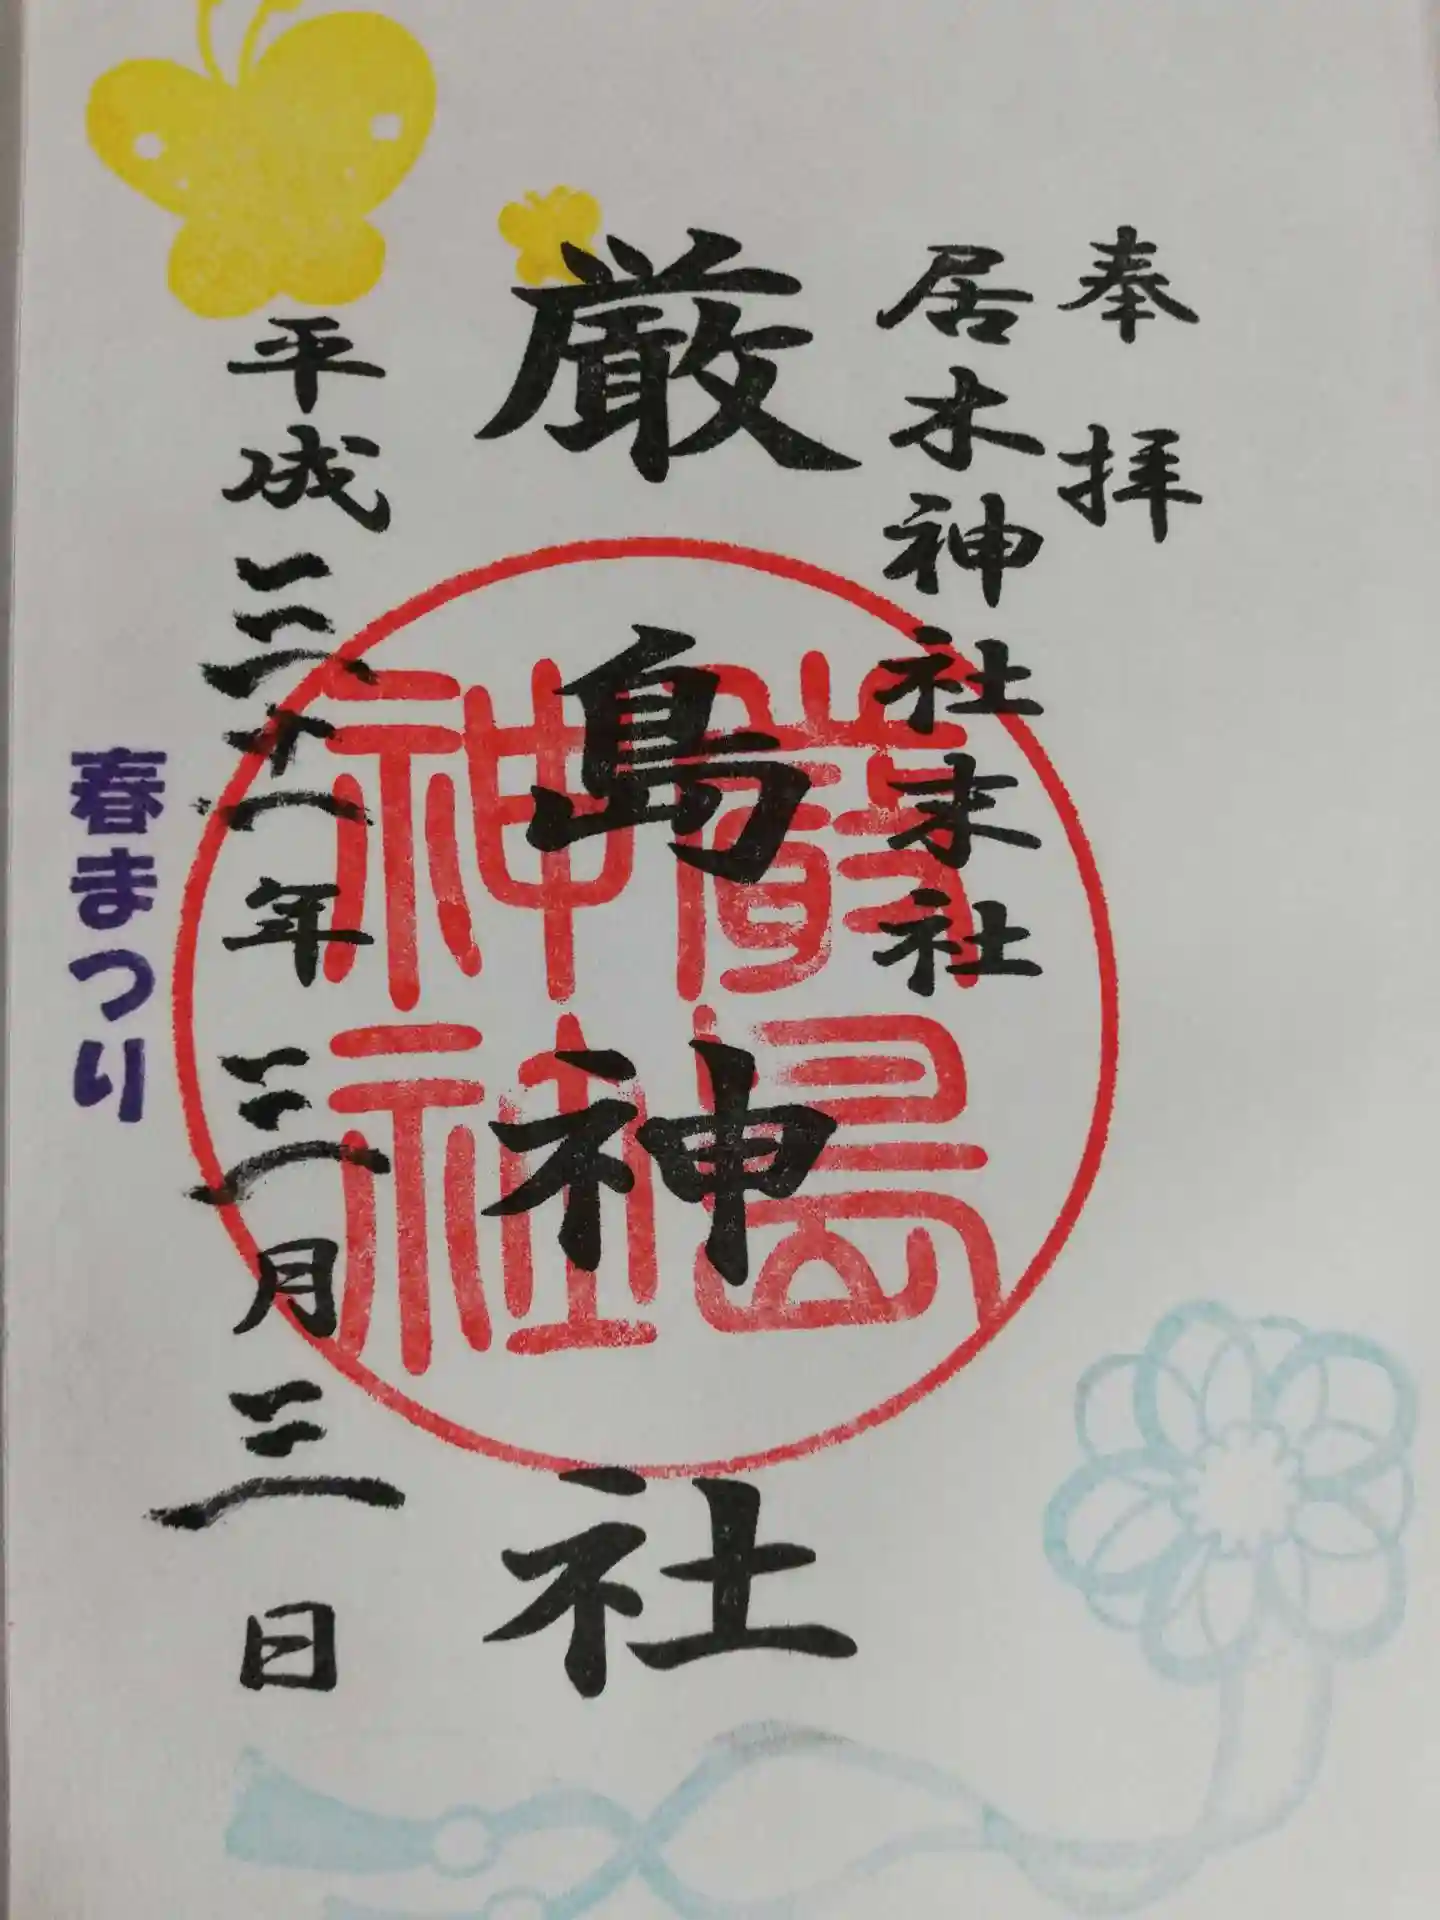 奉拝
居木神社末社
厳島神社
嚴島
神社
平成三十一年三月三日
春まつり